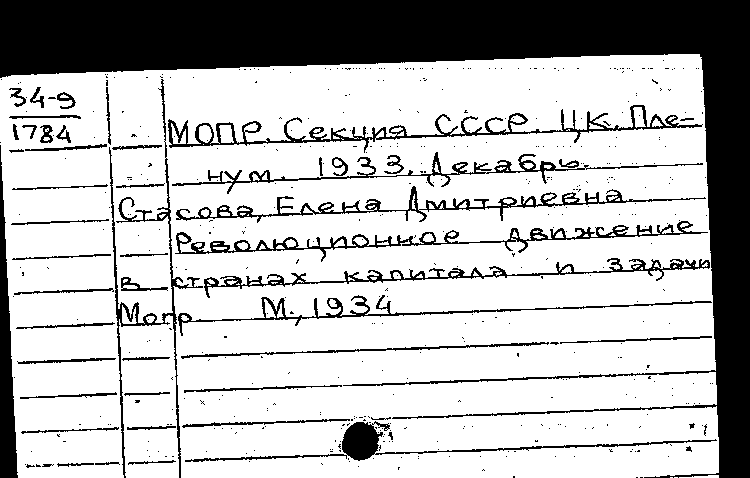 34-9
1784
МОПР. Секция СССР. ЦК. Пле=
нум. 1933. Декабрь.
Стасова, Елена Дмитриевна
Революционное движение
в странах капитала и задачи
Мопр. М., 1934